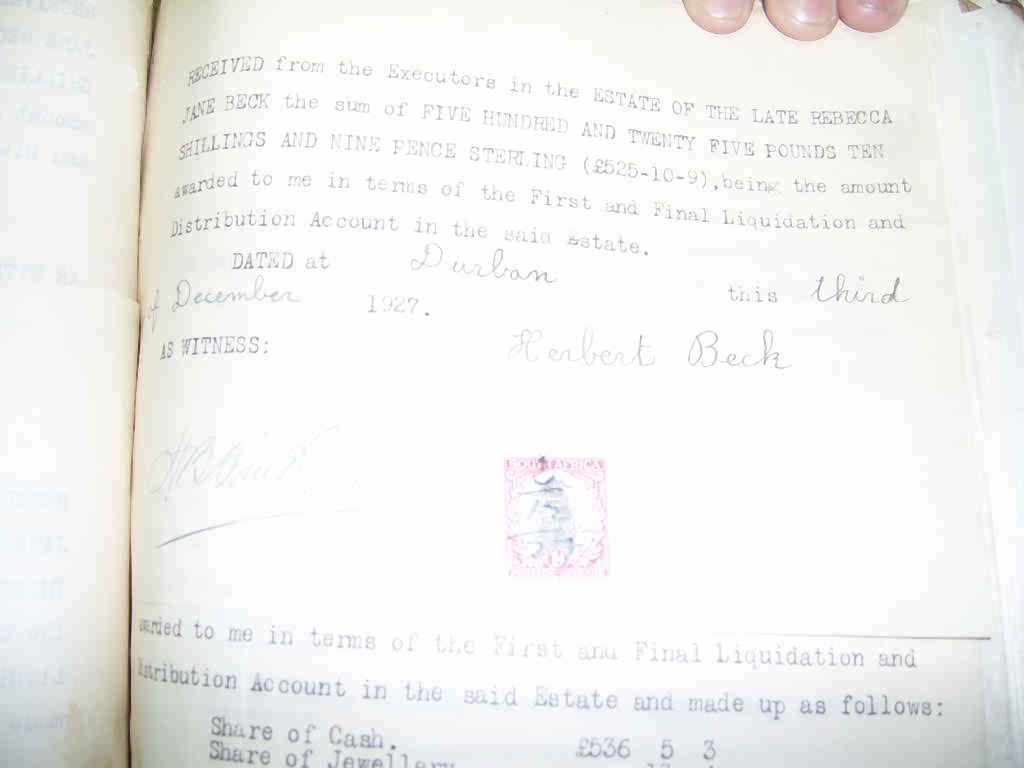 RECEIVED from the Executors in the ESTATE OF THE LATE REBECCA
JANE BECK the sum of FIVE HUNDRED AND TWENTY FIVE POUNDS TEN
SHILLINGS AND NINE PENCE STERLING (£525-10-9),being the amount
awarded to me in terms of the First and Final Liquidation and
Distribution Account in the said Estate.
DATED at Durban this third
of December 1927.
AS WITNESS: Herbert Beck
SOUTH AFRICA
awarded to me in terms of the First and Final Liquidation and
Distribution Account in the said Estate and made up as follows:
Share of Cash. £536 5 3
Share of Jewellery